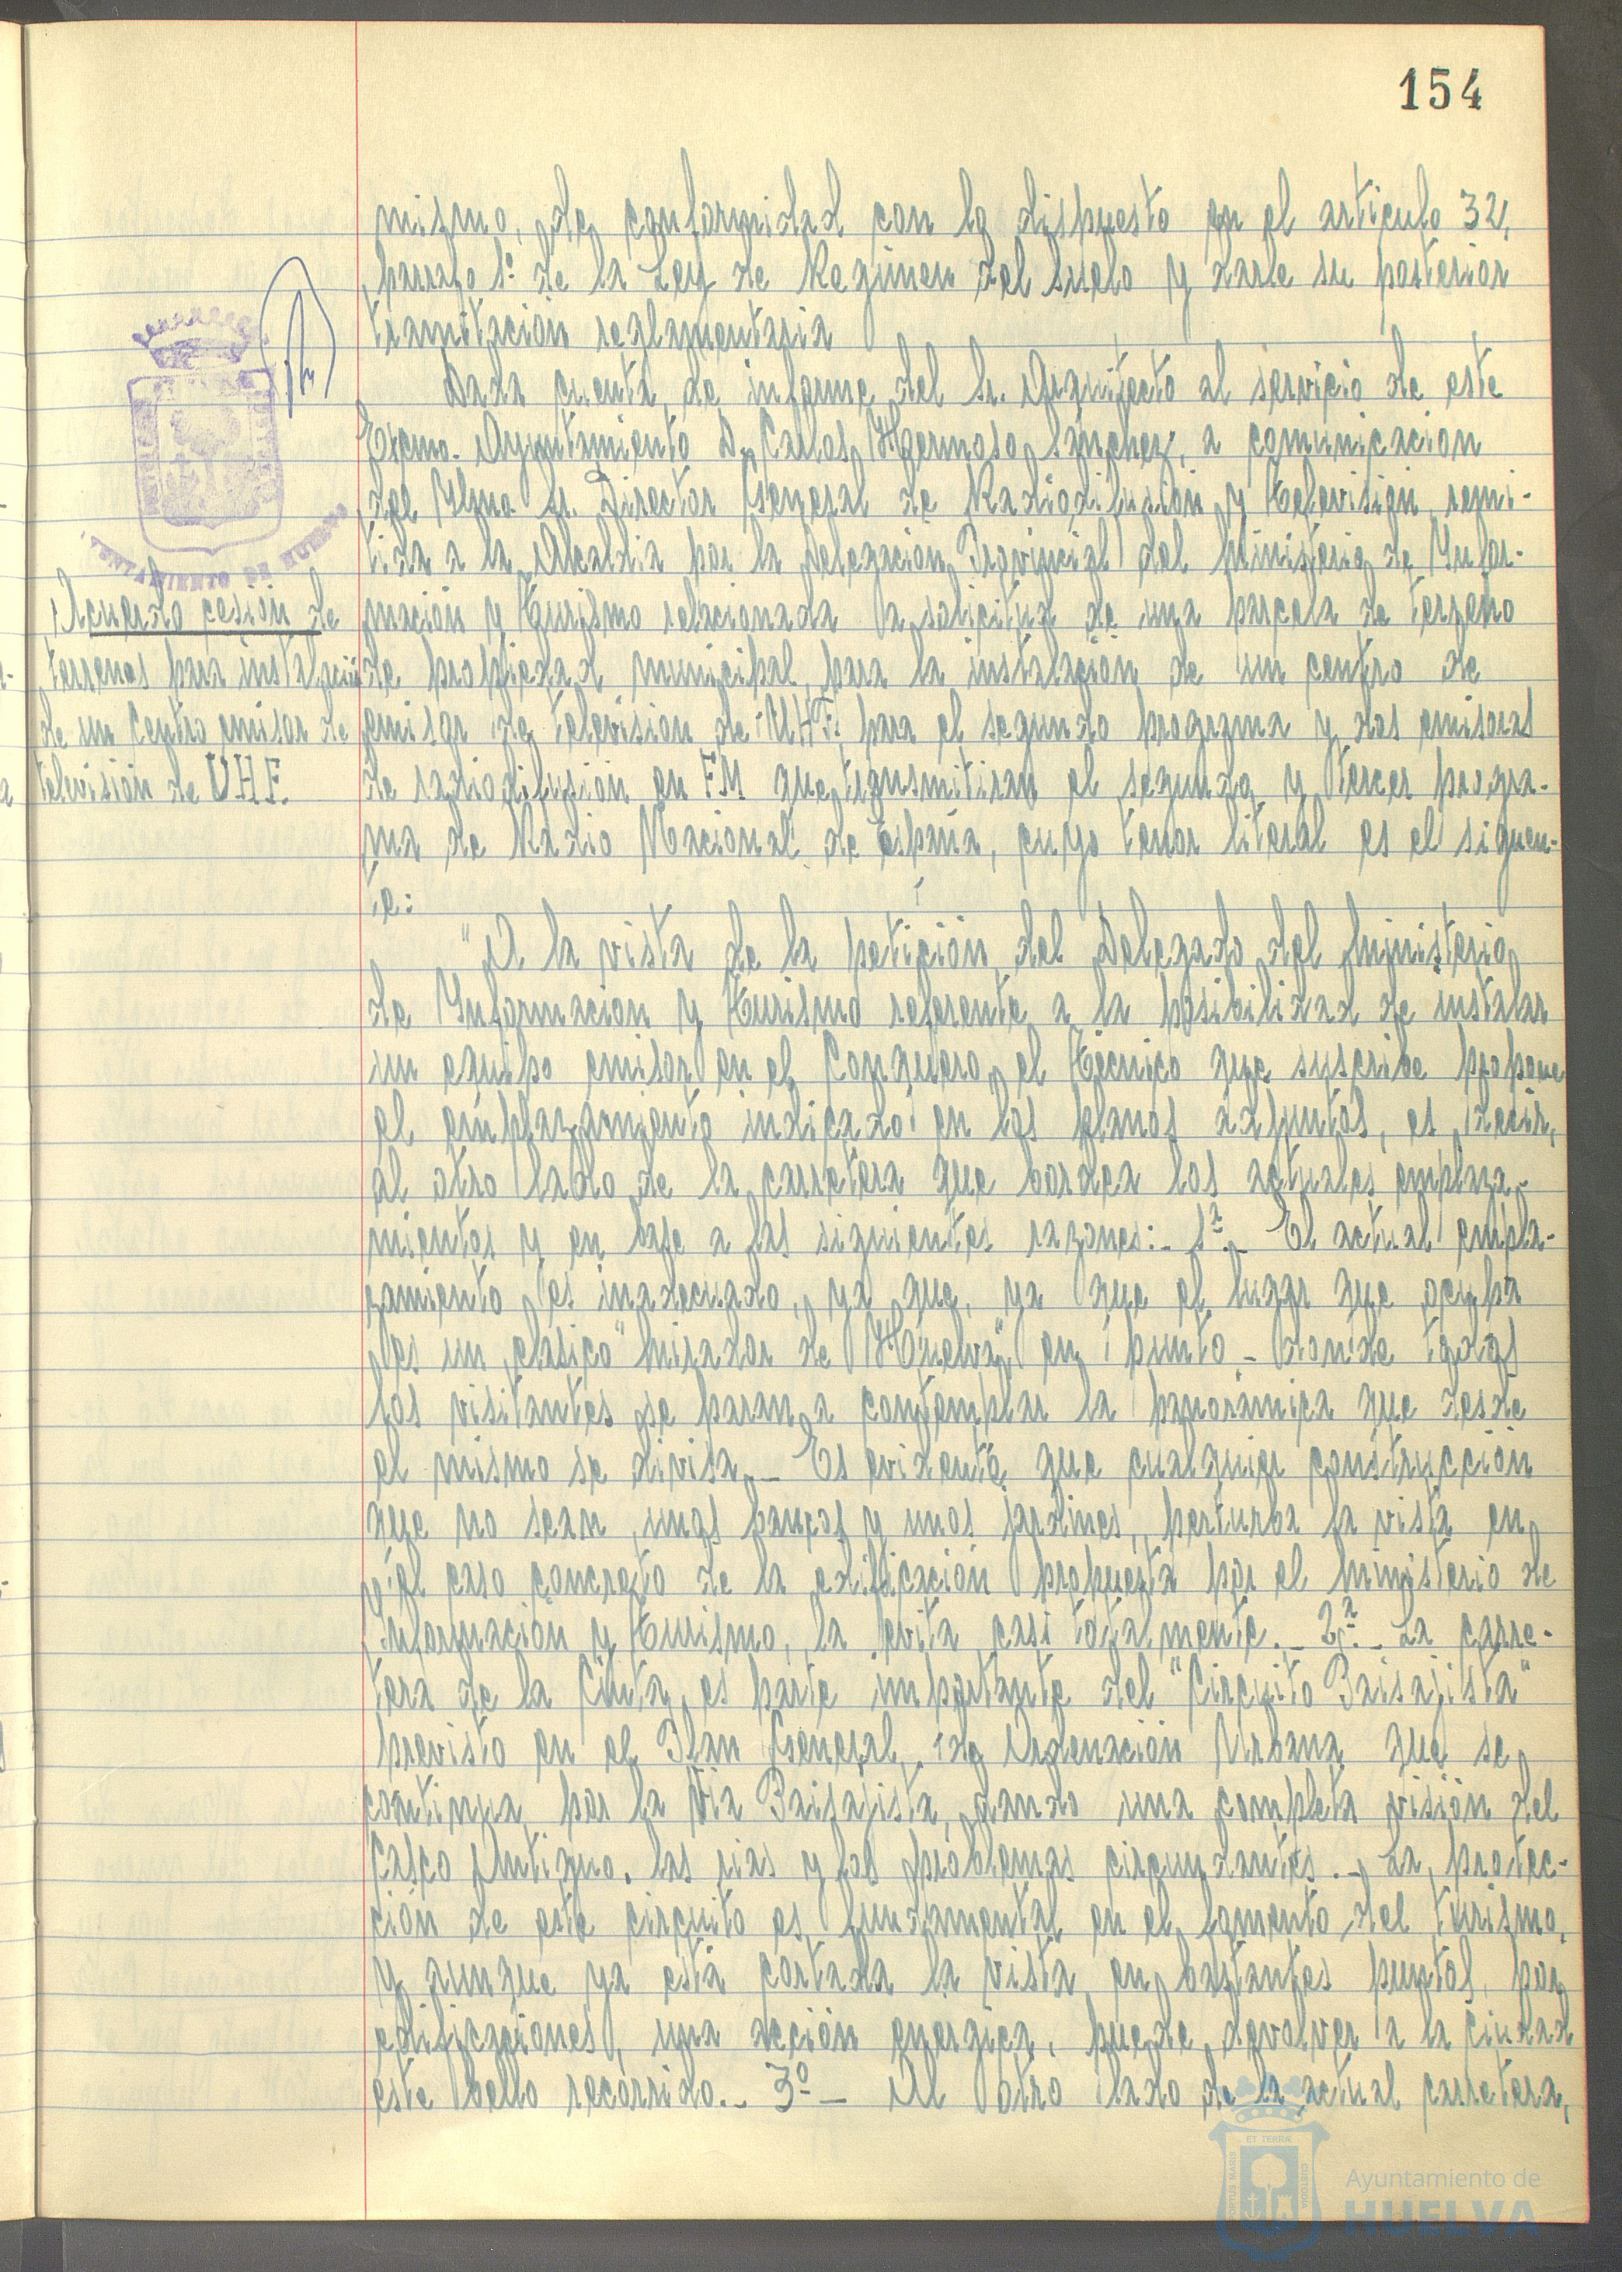 154
mismo, de conformidad con lo dispuesto en el articulo 32,
parrafo 1º de la Ley de Regimen del suelo y darle su posterior
tramitación reglamentaria
Dada cuenta de informe del Sr. Arquitecto al servicio de este
Excmo. Ayuntamiento D. Carlos Hermoso Sánchez, a comunicación
del Ilmo. Sr. Director General de Radiodifusión y Televisión, remi-
tida a la Alcaldia por la Delegación Provincial del Ministerio de Infor-
mación y Turismo relacionada a solicitud de una parcela de terreno
de propiedad municipal, para la instalación de un centro de
emisor de televisión de UHF. para el segundo programa y dos emisoras
de radiodifusión en FM que transmitiran el segundo y tercer progra-
ma de Radio Nacional de España, cuyo tenor literal es el siguen-
te:
"A la vista de la petición del Delegado del Ministerio
de Información y Turismo referente a la posibilidad de instalar
un equipo emisor en el Conquero, el Técnico que suscribe propone
el emplazamiento indicado en los planos adjuntos, es decir,
al otro lado de la carretera que bordea los actuales emplaza-
mientos y en base a las siguientes razones:- 1ª.- El actual empla-
zamiento es inadecuado, ya que, ya que el lugar que ocupa
es un clásico "Mirador de Huelva" en punto - donde todos
los visitantes se paran a contemplar la panorámica que desde
el mismo se divisa.- Es evidente que cualquier construcción
que no sean unos bancos y unos jardines, perturba la vista en
el caso concreto de la edificación propuesta por el Ministerio de
Información y Turismo, la evita casi totalmente.- 2ª.- La carre-
tera de la Cinta, es parte importante del "Circuito Paisajista"
previsto en el Plan General de Ordenación Urbana que se
continua por la Via Paisajista, dando una completa visión del
Casco Antiguo, las rias y los problemas circundantes.- La protec-
ción de este circuito es fundamental en el fomento del turismo,
y aunque ya está cortada la vista en bastantes puntos, por
edificaciones, una acción energica, puede devolver a la ciudad
este bello recorrido.- 3º - Al otro lado de la actual carretera,
Acuerdo cesión de
terrenos para instalación
de un Centro emisor de
televisión de UHF.
AYUNTAMIENTO DE HUELVA
PORTUS MARIS
ET TERRAE
CUSTODIA
Ayuntamiento de
HUELVA